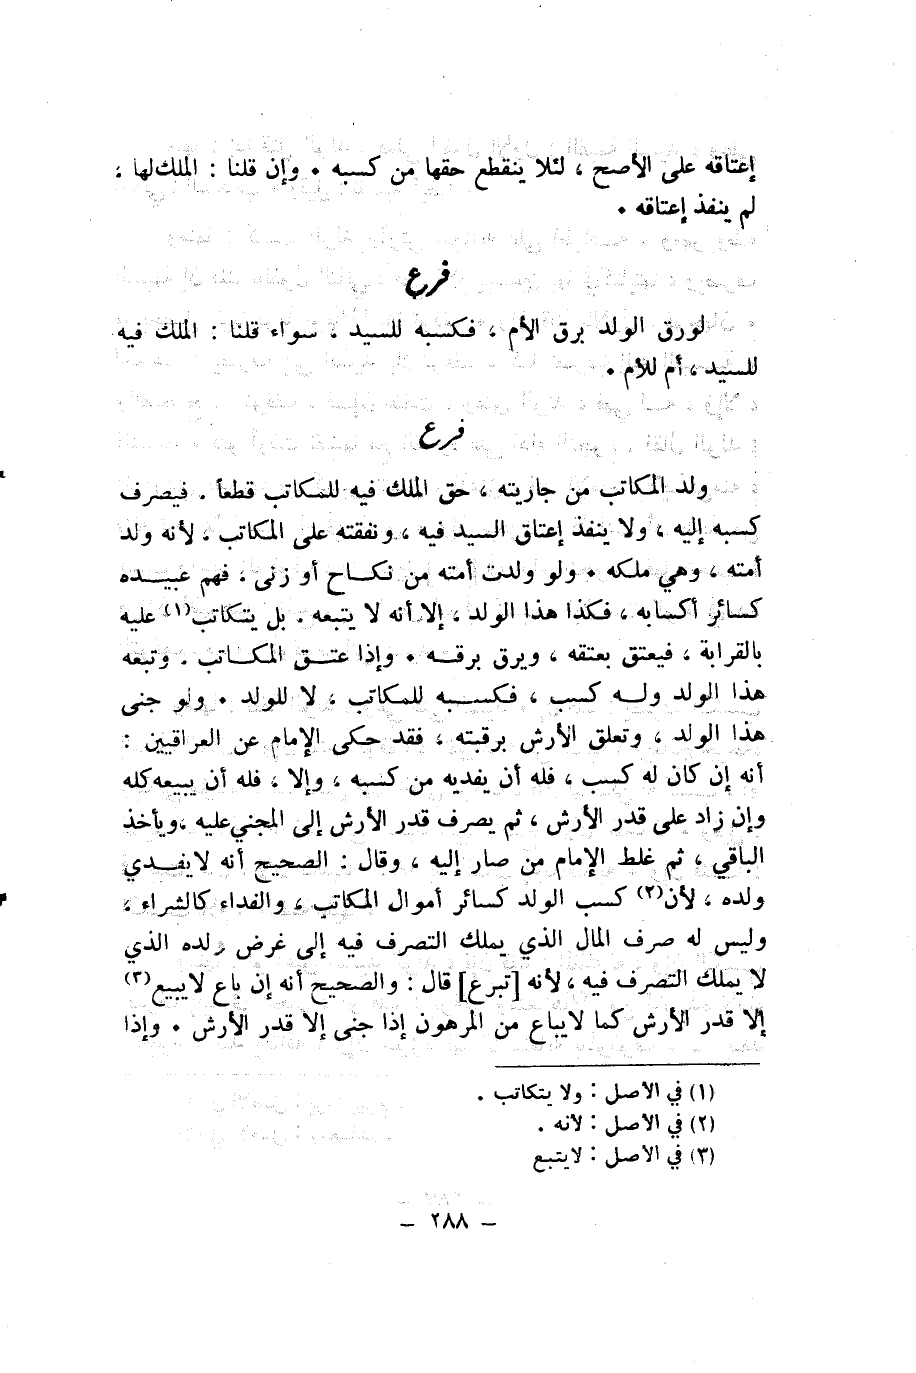 إعتاقه على الأصح ، لئلا ينقطع حقها من كسبه . وإن قلنا : الملك لها ،
لم ينفذ إعتاقه .
فرع
لورق الولد برق الأم ، فكسبه للسيد . سواء قلنا : الملك فيه
للسيد ، أم للأم .
فرع
ولد المكاتب من جاريته ، حق الملك فيه للمكاتب قطعاً . فيصرف
كسبه إليه ، ولا ينفذ إعتاق السيد فيه ، ونفقته على المكاتب ، لأنه ولد
أمته ، وهي ملكه . ولو ولدت أمته من نكاح أو زنى ، فهم عبيده
كسائر أكسابه ، فكذا هذا الولد ، إلا أنه لا يتبعه . بل يتكاتب(١) عليه
بالقرابة ، فيعتق بعتقه ، ويرق برقه . وإذا عتق المكاتب . وتبعه
هذا الولد وله كسب ، فكسبه للمكاتب ، لا للولد . ولو جنى
هذا الولد ، وتعلق الأرش برقبته ، فقد حكى الإمام عن العراقيين :
أنه إن كان له كسب ، فله أن يفديه من كسبه ، وإلا ، فله أن يبيعه كله
وإن زاد على قدر الأرش ، ثم يصرف قدر الأرش إلى المجني عليه ، ويأخذ
الباقي ، ثم غلط الإمام من صار إليه ، وقال : الصحيح أنه لا يفدي
ولده ، لأن(٢) كسب الولد كسائر أموال المكاتب ، والفداء كالشراء ،
وليس له صرف المال الذي يملك التصرف فيه إلى غرض ولده الذي
لا يملك التصرف فيه ، لأنه [تبرع] قال : والصحيح أنه إن باع لا يبيع(٣)
إلا قدر الأرش كما لا يباع من المرهون إذا جنى إلا قدر الأرش . وإذا
(١) في الاصل : ولا يتكاتب .
(٢) في الاصل : لانه .
(٣) في الاصل : لا يتبع
– ٢٨٨ –